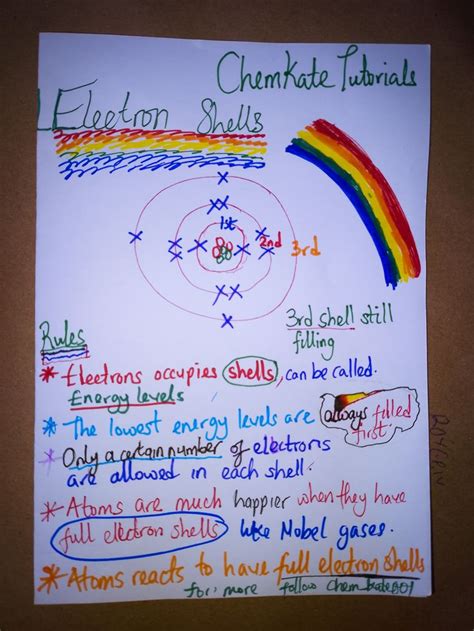 ChemKate Tutorials
Electron Shells
1st
2nd
3rd
3rd shell still
filling
Rules
* Electrons occupies shells, can be called.
Energy levels
* The lowest energy levels are always filled
first
* Only a certain number of electrons
are allowed in each shell.
* Atoms are much happier when they have
full electron shells like Nobel gases.
* Atoms reacts to have full electron shells
for more follow